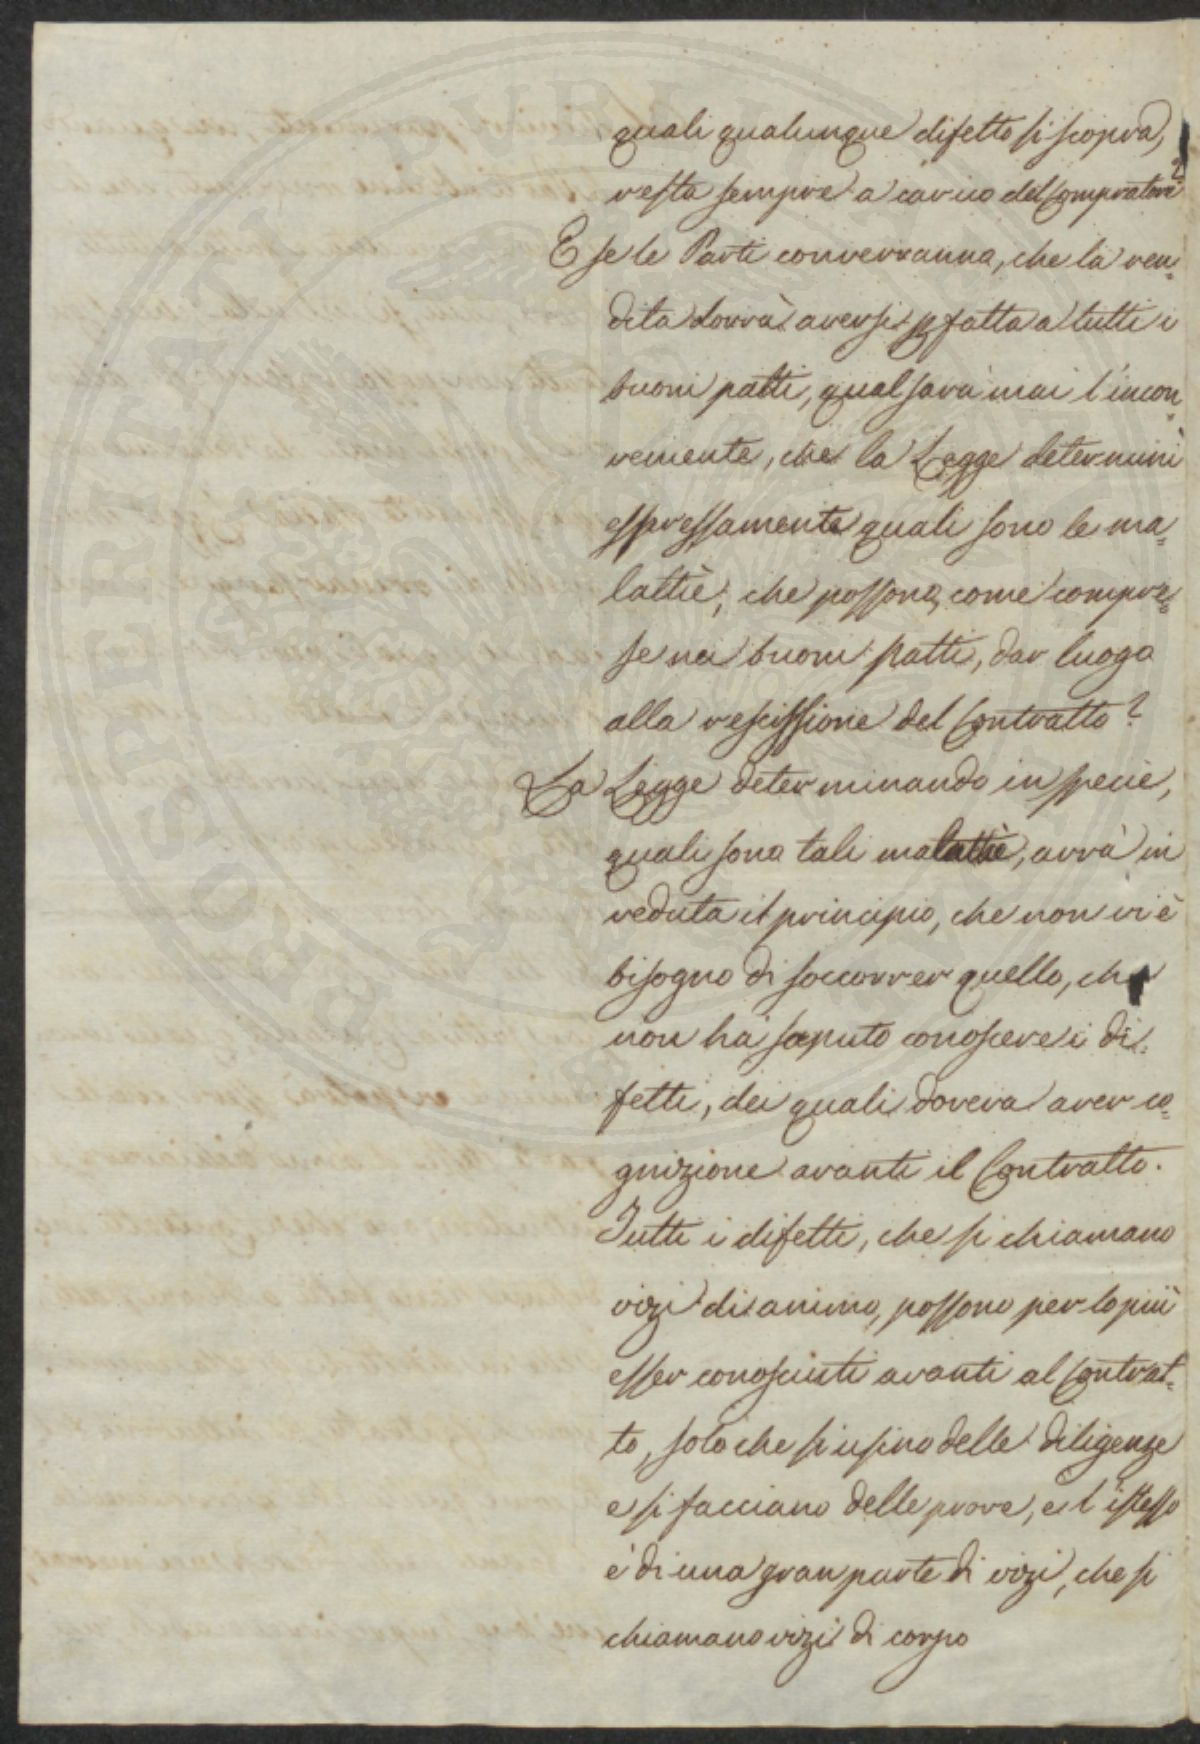 quali qualunque difetto si scopra,
resta sempre a carico del Compratore?
E se le Parti converranna, che la ven=
dita dovrà aversi p fatta a tutti i
buoni patti, qual sarà mai l'incon=
veniente, che la Legge determini
espressamente quali sono le ma=
lattie, che possono, come compre=
se nei buoni patti, dar luogo
alla rescissione del Contratto?
La Legge determinando in specie,
quali sono tali malattie, avrà in
veduta il principio, che non vi è
bisogno di soccorrer quello, che
non ha saputo conoscere i di=
fetti, dei quali doveva aver co=
gnizione avanti il Contratto.
Tutti i difetti, che si chiamano
vizi di animo, possono per lo più
esser conosciuti avanti al Contrat=
to, solo che si usino delle diligenze
e si facciano delle prove, e l'istesso
è di una gran parte di vizi, che si
chiamano vizi di corpo
PROSPERITATI PUBLICAE